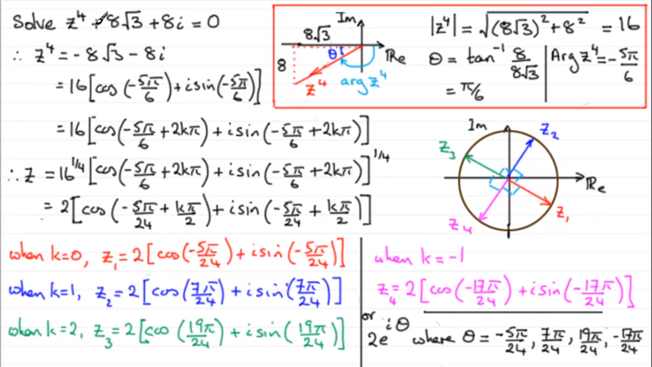 Solve z⁴ + 8√3 + 8i = 0
∴ z⁴ = -8√3 - 8i
= 16[cos(-5π/6) + i sin(-5π/6)]
= 16[cos(-5π/6 + 2kπ) + i sin(-5π/6 + 2kπ)]
∴ z = 16^1/4 [cos(-5π/6 + 2kπ) + i sin(-5π/6 + 2kπ)]^1/4
= 2[cos(-5π/24 + kπ/2) + i sin(-5π/24 + kπ/2)]
Im
8√3
8
θ
Re
z⁴
arg z⁴
|z⁴| = √((8√3)² + 8²) = 16
θ = tan⁻¹ 8/8√3
= π/6
Arg z⁴ = -5π/6
Im
z₂
z₃
Re
z₄
z₁
when k=0, z₁ = 2[cos(-5π/24) + i sin(-5π/24)]
when k=1, z₂ = 2[cos(7π/24) + i sin(7π/24)]
when k=2, z₃ = 2[cos(19π/24) + i sin(19π/24)]
when k=-1
z₄ = 2[cos(-17π/24) + i sin(-17π/24)]
or
2e^iθ where θ = -5π/24, 7π/24, 19π/24, -17π/24